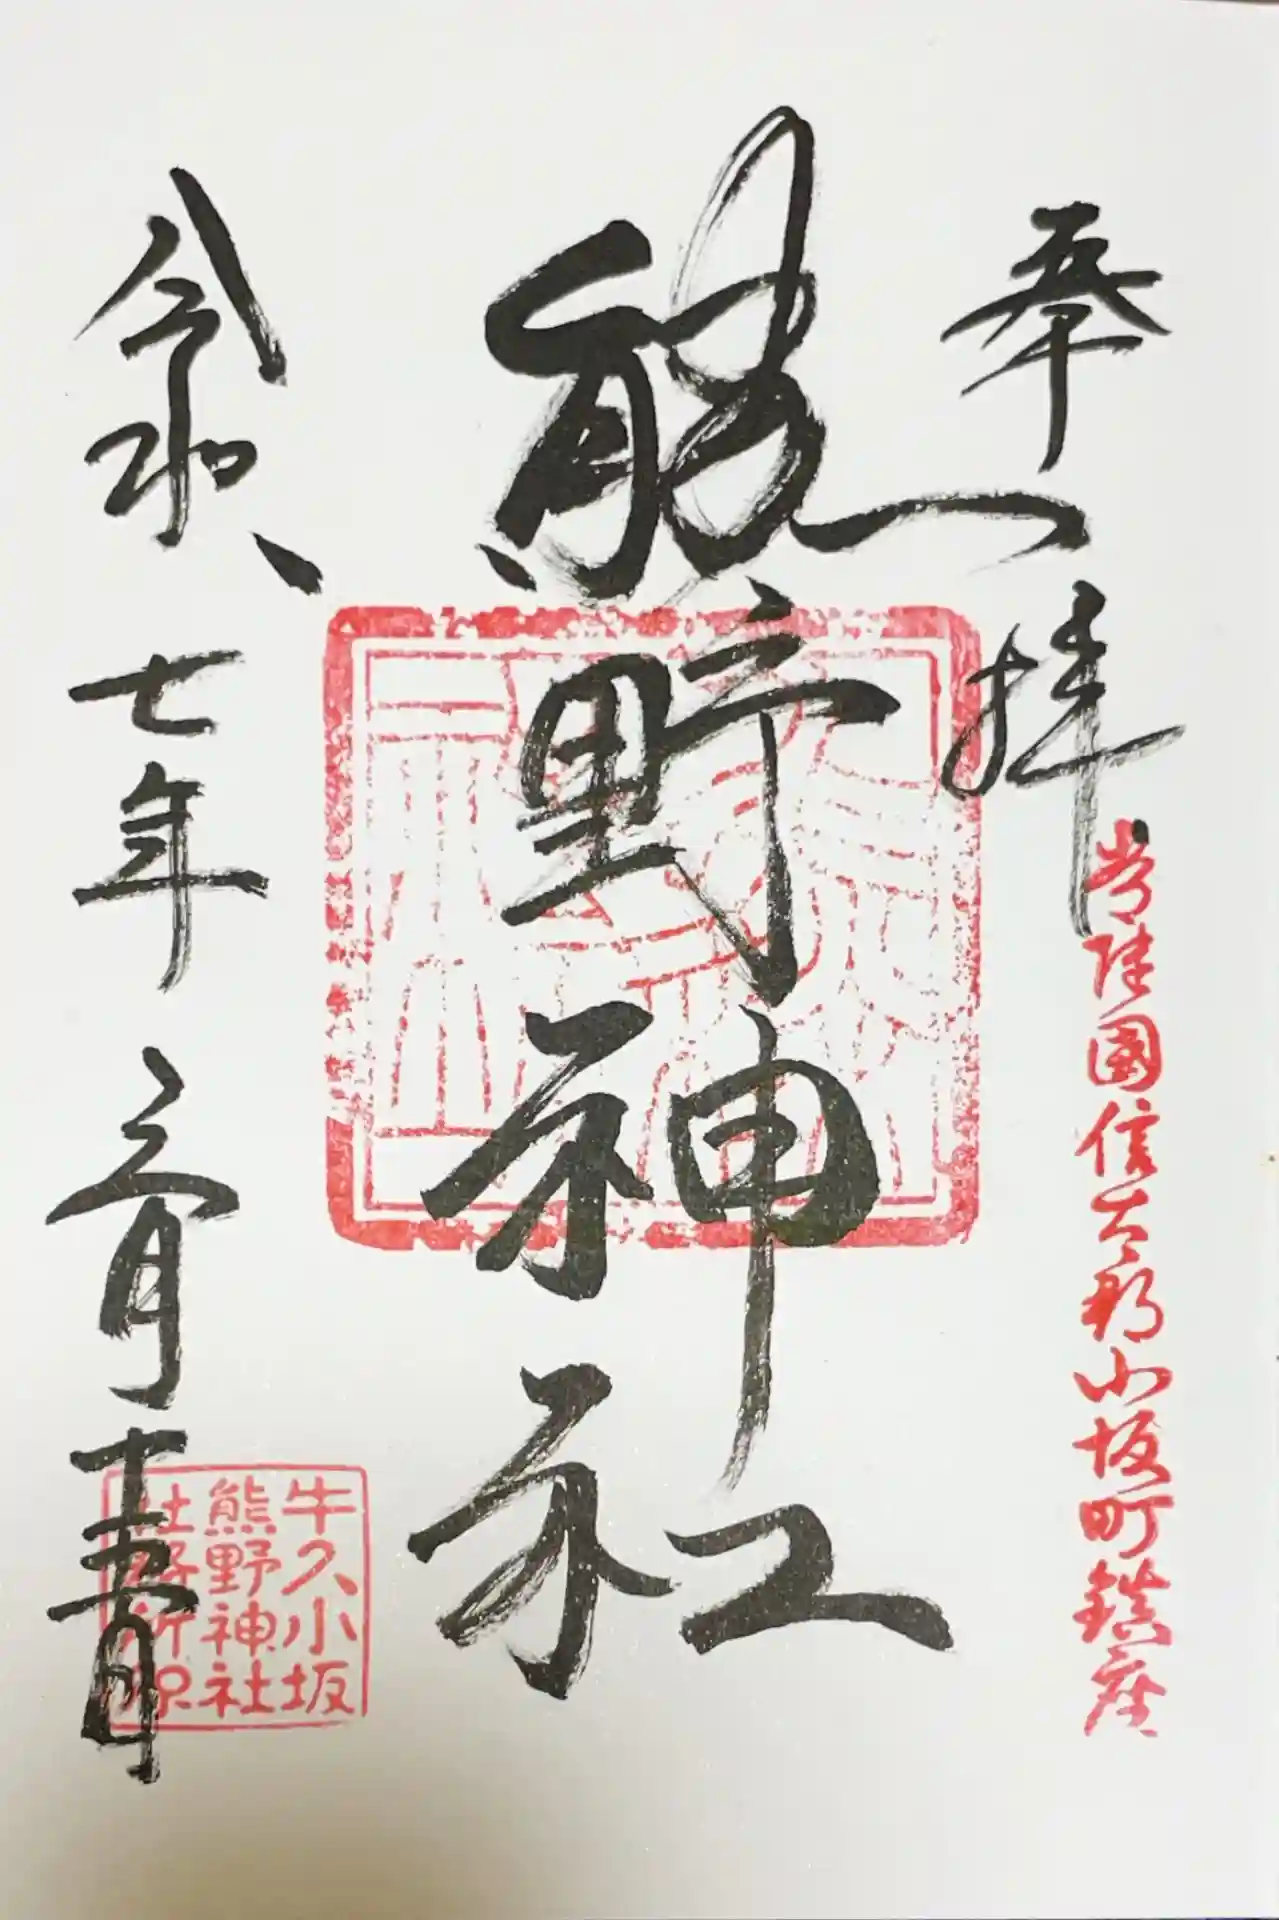 奉拝
常陸國信太郡小坂町鎮座
熊野神社
令和七年
月十五日
牛久小坂
熊野神社
社務所印